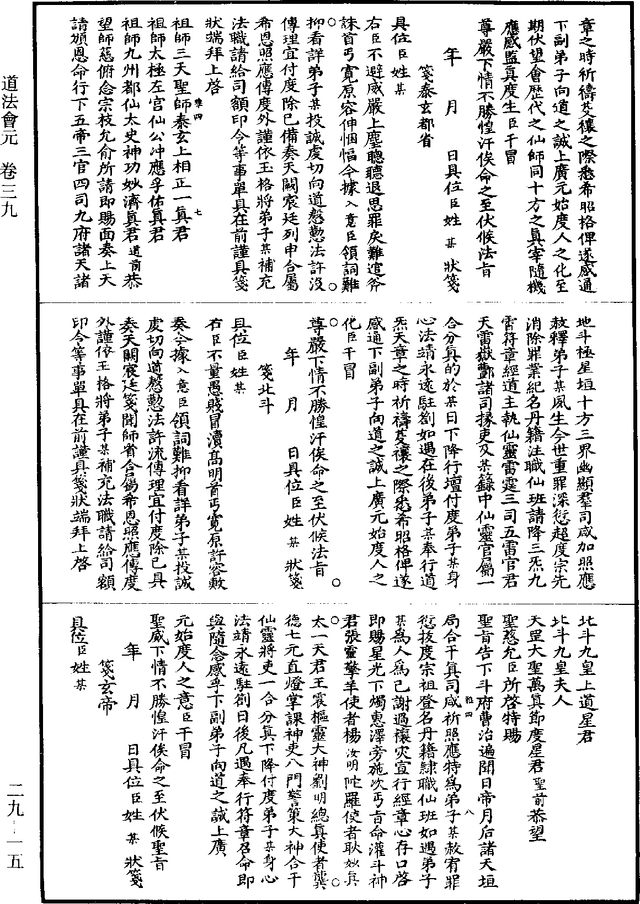 章之時祈禱芟禳之際悉希昭格俾遂感通
下副弟子向道之誠上廣元始度人之化至
期伏望會歷代之仙師同十方之真宰隨機
應感監真度生臣干冒
尊嚴下情不勝惶汗俟命之至伏候法旨
年　月　日具位臣姓某狀箋
箋泰玄都省
具位臣姓某
右臣不避威嚴上塵聰聽退思罪戾難逭咎
誅首丐寬原容伸悃愊今據入意臣領詞難
抑看詳弟子某投誠虔切向道慇懃法許没
傳理宜付度除已備奏天闕宸廷列申合屬
希恩照應傳度外謹依玉格將弟子某補充
法職請給司額印令等事單具在前謹具箋
狀端拜上啓
祖師三天聖師泰玄上相正一真君
雅四　七
祖師太極左宮仙公冲應孚佑真君
祖師九州都仙太史神功妙濟真君道前恭
望師慈俯念宗枝允俞所請即賜面奏上天
請頒恩命行下五帝三官四司九府諸天諸
道法會元　卷三九
地斗極星垣十方三界幽顯羣司咸加照應
赦釋弟子某夙生今世重罪深愆超度宗先
消除罪業紀名丹籍注職仙班請降三炁九
霄符章經道主執仙靈雷霆三司五雷官君
天雷嶽酆諸司掾吏及某籙中仙靈官屬一
合分真的於某日下降行壇付度弟子某身
心法靖永遠駐劄如遇在後弟子某奉行道
炁天章之時祈禱芟禳之際悉希昭格俾遂
感通下副弟子向道之誠上廣元始度人之
化臣干冒
尊嚴下情不勝惶汗俟命之至伏候法旨
年　月　日具位臣姓某狀箋
箋北斗
具位臣姓某
右臣不量愚賤冒瀆高明首丐寬原許容敷
奏今據入意臣領詞難抑看詳弟子某投誠
虔切向道慇懃法許流傳理宜付度除已具
奏天闕宸廷箋聞師省合屬希恩照應傳度
外謹依玉格將弟子某補充法職請給司額
印令等事單具在前謹具箋狀端拜上啓
北斗九皇上道星君
北斗九皇夫人
天罡大聖萬真節度星君聖前恭望
聖慈允臣所啓特賜
聖旨告下斗府曹治遍聞日帝月后諸天垣
局合干真司咸祈照應特爲弟子某赦宥罪
雅四　八
愆拔度宗祖登名丹籍隸職仙班如遇弟子
某爲人爲己謝過禳灾宣行經章心存口啓
即賜星光下燭惠澤旁施次丐旨命灌斗神
君張靈擎羊使者楊汝明陀羅使者耿妙真
太一天君王震樞靈大神劉明總真使者龔
德七元直燈掌課神吏八門警策大神合干
仙靈將吏一合分真下降付度弟子某身心
法靖永遠駐劄日後凡遇奉行符章召命即
與隨念感孚下副弟子向道之誠上廣
元始度人之意臣干冒
聖威下情不勝惶汗俟命之至伏候聖旨
年　月　日具位臣姓某狀箋
箋玄帝
具位臣姓某
二九－一五